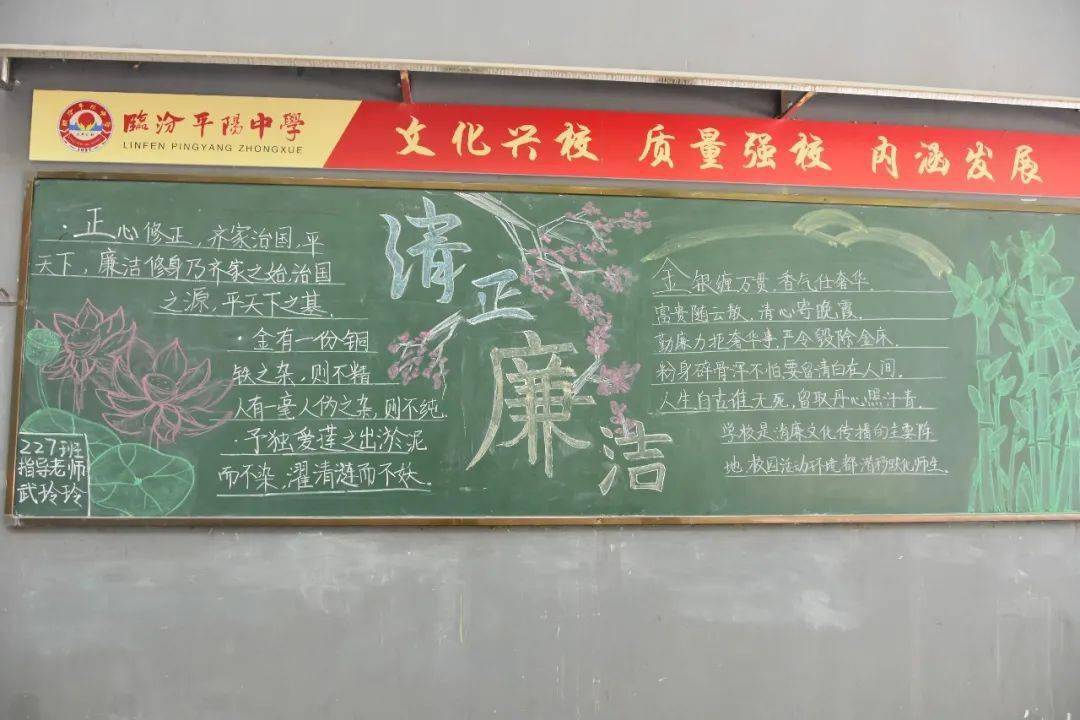 臨汾平陽中學
LINFEN PINGYANG ZHONGXUE
文化兴校 质量强校 内涵发展
·正心修正,齐家治国,平
天下,廉洁修身乃齐家之始,治国
之源,平天下之基.
·金有一份铜
铁之杂,则不精
人有一毫人伪之杂,则不纯.
·予独爱莲之出淤泥
而不染,濯清涟而不妖.
227班
指导老师
武玲玲
清正廉洁
金银缠万贯,香气仕奢华.
富贵随云散,清心寄晚霞.
勤廉力拒奢华事,严令毁除金床.
粉身碎骨浑不怕要留清白在人间.
人生自古谁无死,留取丹心照汗青.
学校是清廉文化传播的主要阵
地,校园活动环境都潜移默化师生.